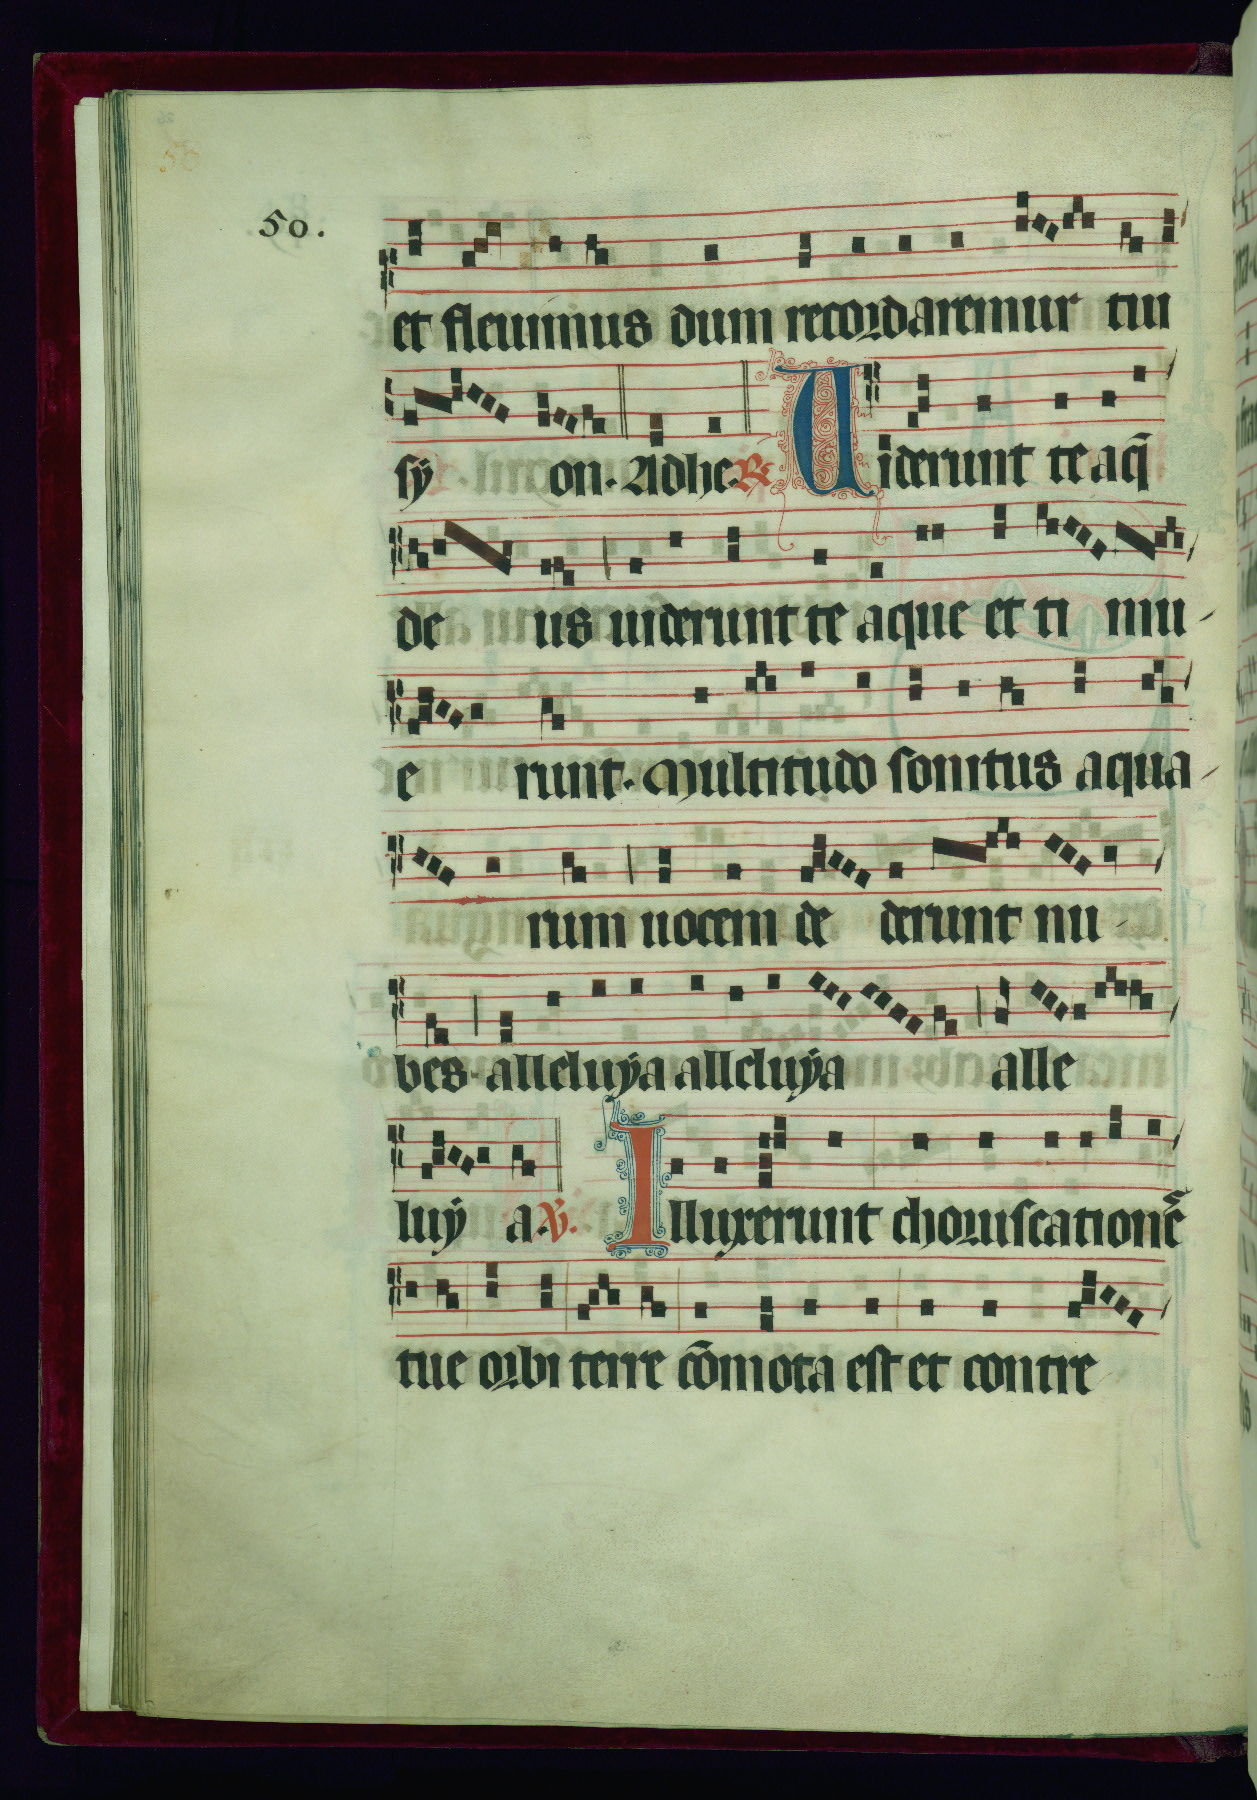 50.
et fleuimus dum recordaremur tui
sÿ on. Adhe. ℟ Uiderunt te aq̄
de us uiderunt te aque et ti mu
e runt. Multitudo sonitus aqua
rum uocem de derunt nu
bes. alleluÿa alleluÿa alle
luÿ a. ℣. Illuxerunt choruscationē
tue orbi terre cōmota est et contre